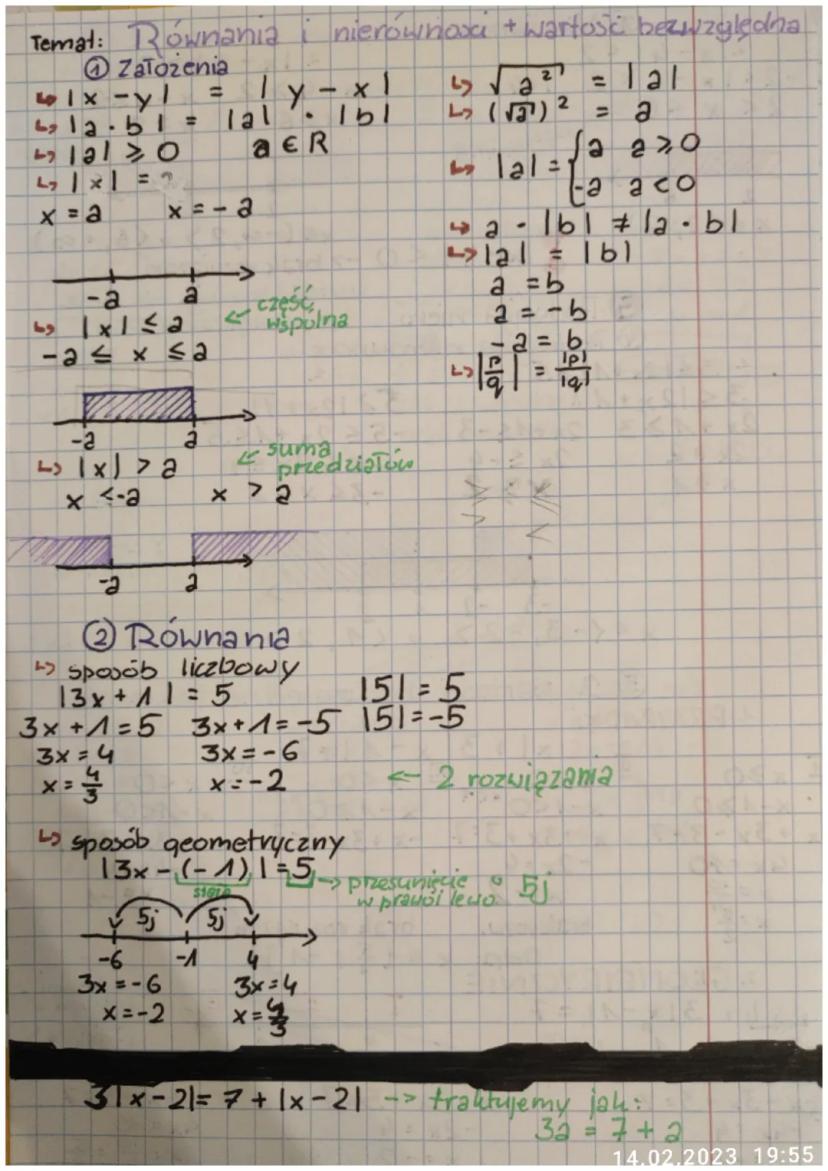 Temat: Równania i nierówności + wartość bezwzględna
① Założenia
↳ |x - y| = |y - x|
↳ |a · b| = |a| · |b|
↳ |a| ⩾ 0 a ∈ R
↳ |x| =
x = a x = - a
-a a
↳ |x| ≤ a ← część wspólna
-a ≤ x ≤ a
-a a
↳ |x| > a ← suma przedziałów
x < -a x > a
-a a
↳ √a² = |a|
↳ (√a)² = a
↳ |a| = { a a ⩾ 0
-a a < 0
↳ a · |b| ≠ |a · b|
↳ |a| = |b|
a = b
a = - b
- a = b
↳ |p/q| = |p|/|q|
② Równania
↳ sposób liczbowy
|3x + 1| = 5 |5| = 5
3x + 1 = 5 3x + 1 = -5 |5| = -5
3x = 4 3x = -6
x = 4/3 x = -2 ← 2 rozwiązania
↳ sposób geometryczny
|3x - (-1)| = 5 → przesunięcie o 5j
w prawo i lewo
5j 5j
-6 -1 4
3x = -6 3x = 4
x = -2 x = 4/3
3|x - 2| = 7 + |x - 2| --> traktujemy jak:
3a = 7 + a
14.02.2023 19:55